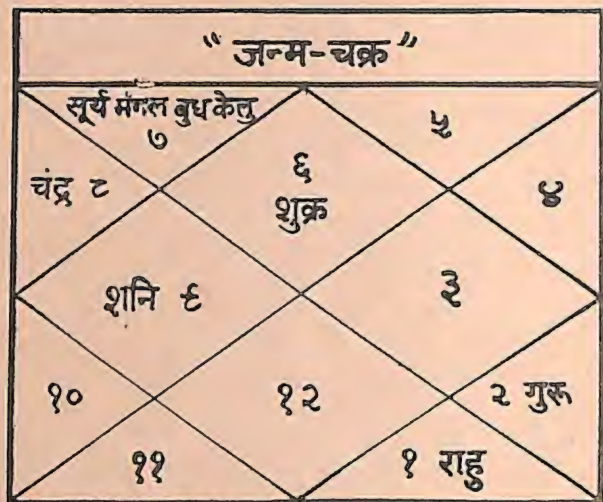 “ जन्म-चक्र ”
सूर्य मंगल बुध केतु
७
५
६
शुक्र
चंद्र ८
४
शनि ९
३
१०
१२
२ गुरू
११
१ राहु